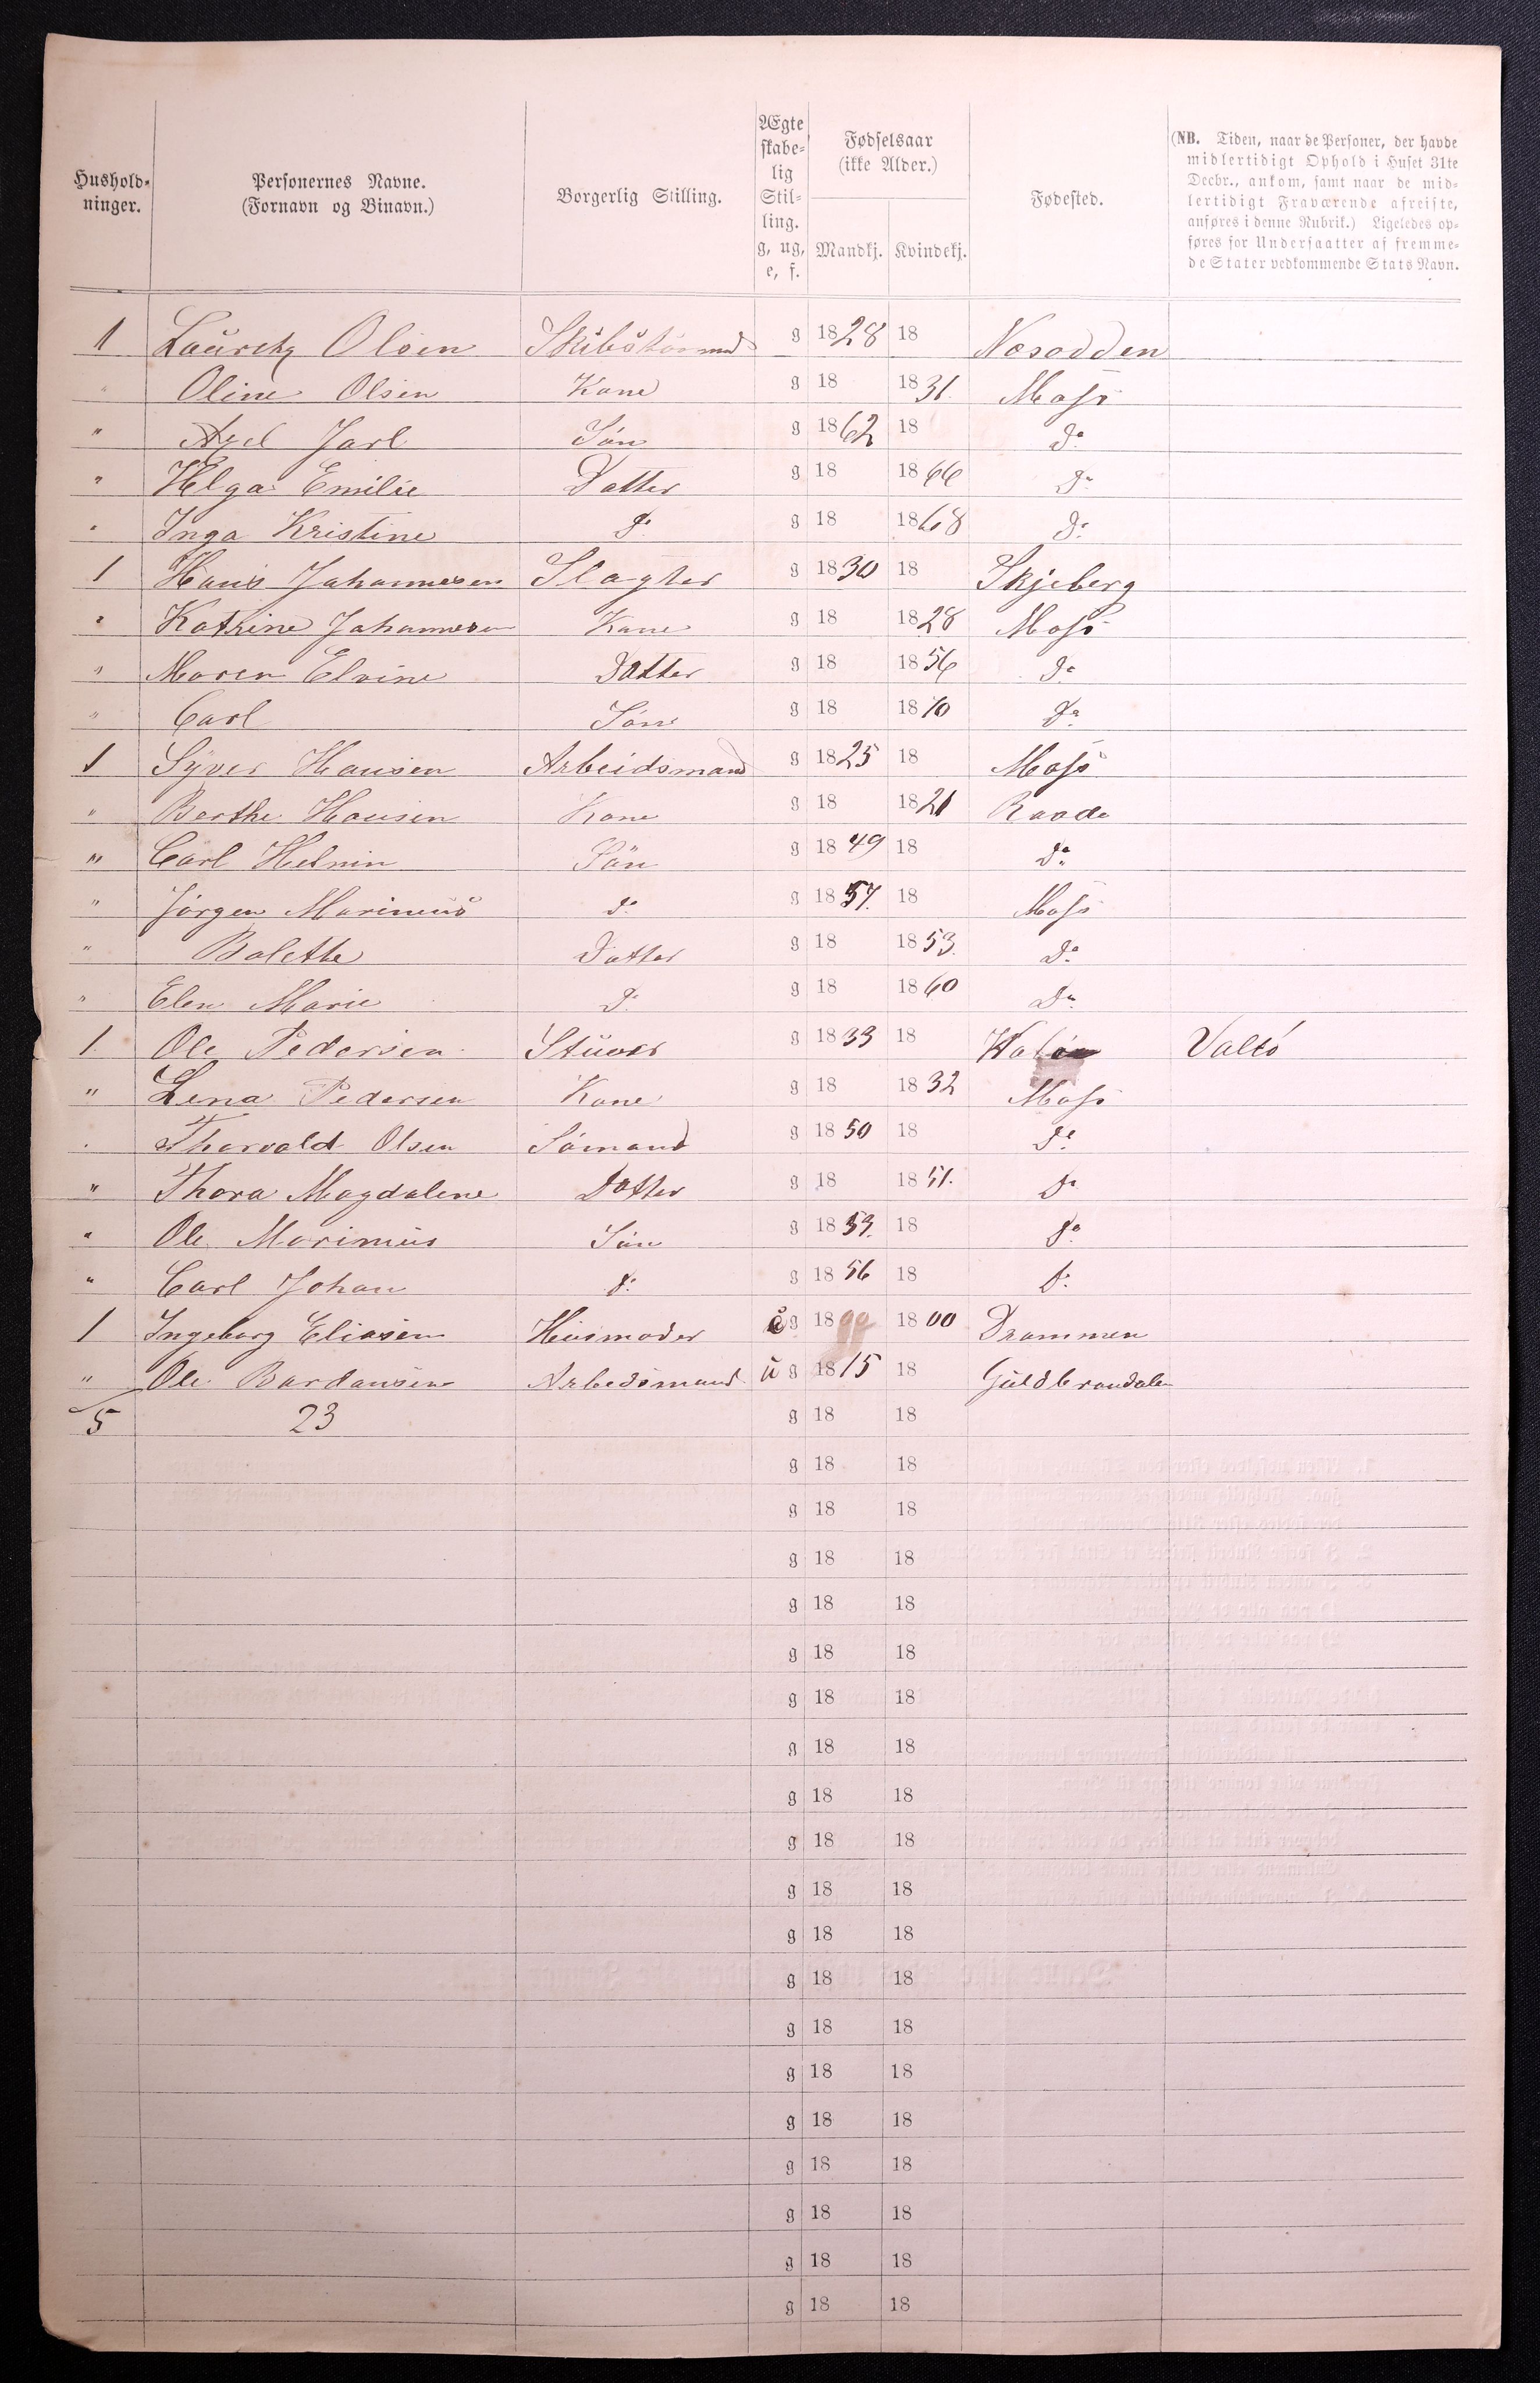 Hushold-
ninger.
Personernes Navne.
(Fornavn og Binavn.)
Borgerlig Stilling.
Ægte
skabe-
lig
Stil-
ling.
g, ug,
e, f.
Fødselsaar
(ikke Alder.)
Mandkj. Kvindekj.
Fødested.
(NB. Tiden, naar de Personer, der havde
midlertidigt Ophold i Huset 31te
Decbr., ankom, samt naar de mid-
lertidigt Fraværende afreiste,
anføres i denne Rubrik.) Ligeledes op-
føres for Undersaatter af fremme-
de Stater vedkommende Stats Navn.
1 Lauretz Olsen Skibstømmd g 1828 18 Nesodden
" Oline Olsen Kone g 18 1831. Moss
" Axel Jarl Søn g 1862 18 Do
" Helga Emilie Datter g 18 1866 Do
" Inga Kristine Do g 18 1868 Do
1 Hans Johannesen Slagter g 1830 18 Skjeberg
" Katrine Johannesen Kone g 18 1828 Moss
" Maren Elvine Datter g 18 1856 Do
" Carl Søn g 18 1870 Do
1 Syver Hansen Arbeidsmand g 1825 18 Moss
" Berthe Hansen Kone g 18 1821 Raade
" Carl Helmin Søn g 1849 18 Do
" Jørgen Marinius Do g 1857. 18 Moss
" Bolette Datter g 18 1853. Do
" Elen Marie Do g 18 1860 Do
1. Ole Pedersen Stuver g 1833 18 Valø
" Lena Pedersen Kone g 18 1832 Moss
" Thorvald Olsen Sømand g 1850 18 Do
" Thora Magdalene Datter g 18 1851. Do
" Ole Marinius Søn g 1853. 18 Do
" Carl Johan Do g 1856 18 Do
1 Ingeborg Eliasen Husmoder g 1800 1800 Drammen
" Ole Bardansen Arbedsmand u g 1815 18 Guldbrandalen
5 23 g 18 18
g 18 18
g 18 18
g 18 18
g 18 18
g 18 18
g 18 18
g 18 18
g 18 18
g 18 18
g 18 18
g 18 18
g 18 18
g 18 18
g 18 18
g 18 18
g 18 18
g 18 18
g 18 18
g 18 18